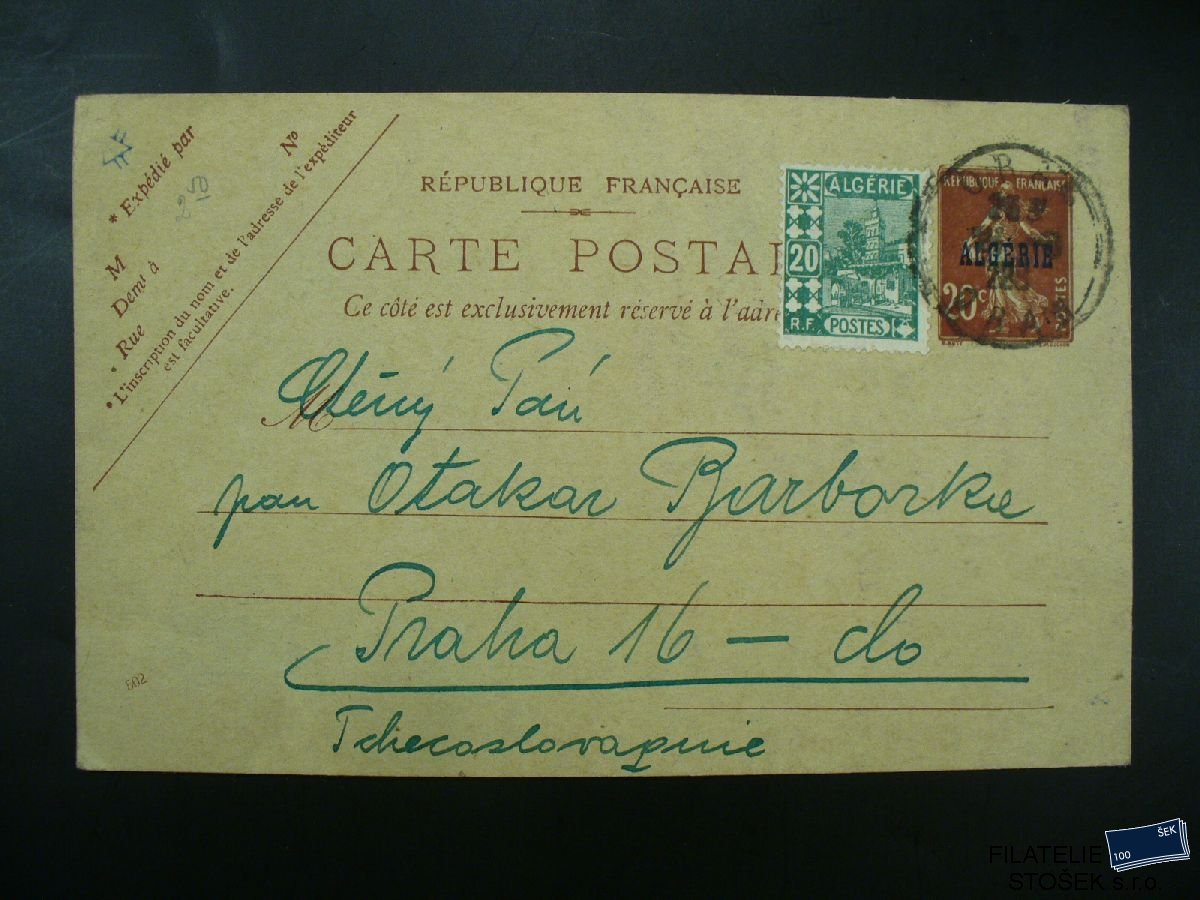 * Expédié par
M
Nº
Demt à
* Rue
* L'inscription du nom et de l'adresse de l'expéditeur
est facultative.
2250
RÉPUBLIQUE FRANÇAISE
CARTE POSTAL
Ce côté est exclusivement réservé à l'adre
ALGÉRIE
20
R.F. POSTES
RÉPUBLIQUE FRANÇAISE
ALGÉRIE
20c
M
Ctěný Pán
pan Otakar Barborka
Praha 16 – do
Tchecoslovaquie
602
FILATELIE
STOŠEK s.r.o.
100 ŠEK